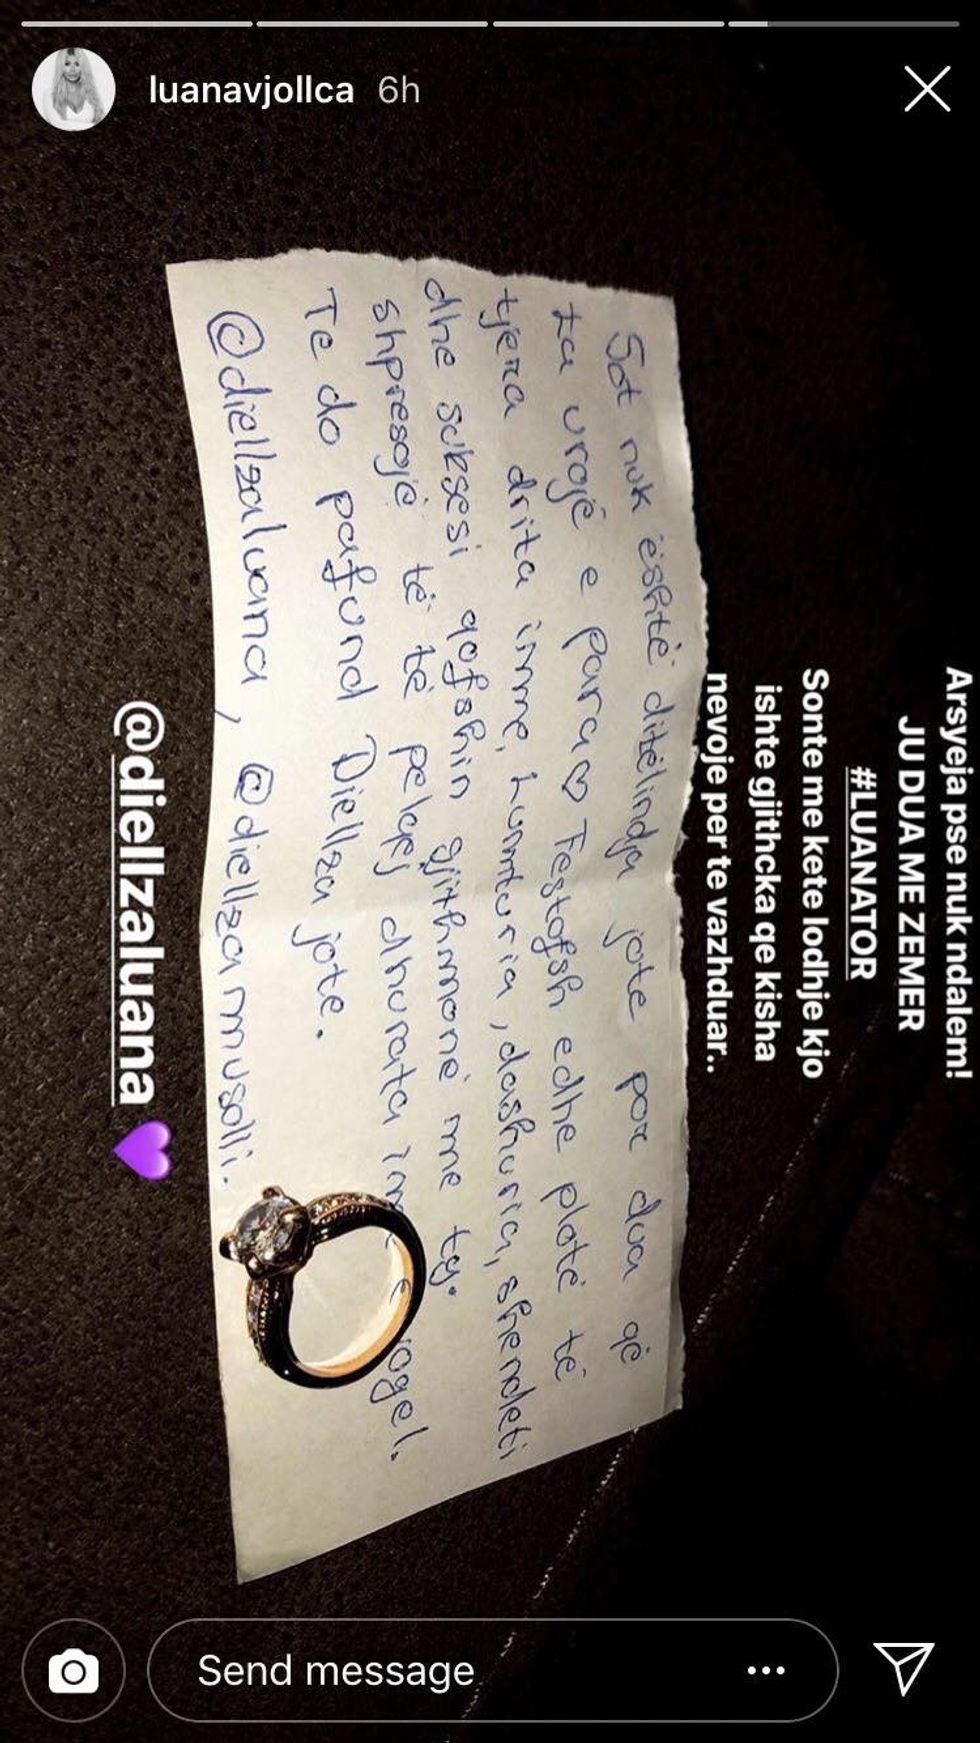 luanavjollca 6h
Arsyeja pse nuk ndalem!
JU DUA ME ZEMER
#LUANATOR
Sonte me kete lodhje kjo
ishte gjithcka qe kisha
nevoje per te vazhduar..
Sot nuk është ditëlindja jote por dua që
ta urojë e para♡ Festofsh edhe plotë të
tjera drita ime, Lumturia, dashuria, shendeti
dhe suksesi qofshin gjithmonë me ty.
shpresojë të të pelqej dhurata vogel.
Te do pafund Diellza jote.
@diellzaluana, @diellzamusolli.
@diellzaluana 💜
Send message